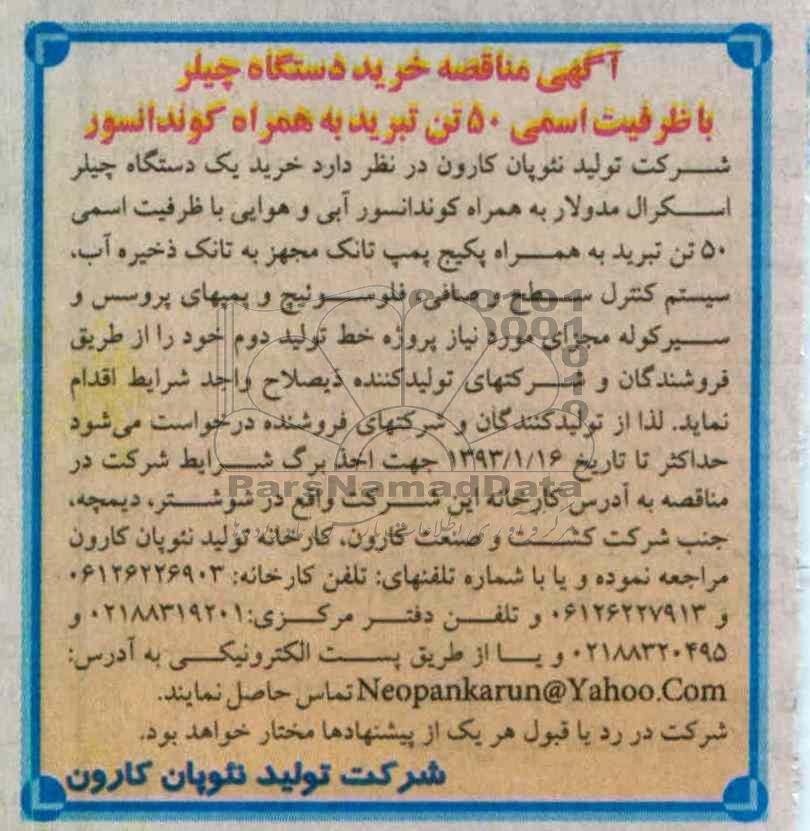 آگهی مناقصه خرید دستگاه چیلر
با ظرفیت اسمی ۵۰ تن تبرید به همراه کوندانسور
شرکت تولید نئوپان کارون در نظر دارد خرید یک دستگاه چیلر
اسکرال مدولار به همراه کوندانسور آبی و هوایی با ظرفیت اسمی
۵۰ تن تبرید به همراه پکیج پمپ تانک مجهز به تانک ذخیره آب،
سیستم کنترل سطح و صافی، فلوسوئیچ و پمپهای پروسس و
سیرکوله مجزای مورد نیاز پروژه خط تولید دوم خود را از طریق
فروشندگان و شرکتهای تولیدکننده ذیصلاح واجد شرایط اقدام
نماید. لذا از تولیدکنندگان و شرکتهای فروشنده درخواست می‌شود
حداکثر تا تاریخ ۱۳۹۳/۱/۱۶ جهت اخذ برگ شرایط شرکت در
ParsNamadData
مناقصه به آدرس کارخانه این شرکت واقع در شوشتر، دیمچه،
جنب شرکت کشت و صنعت کارون، کارخانه تولید نئوپان کارون
مراجعه نموده و یا با شماره تلفنهای: تلفن کارخانه: ۰۶۱۲۶۲۲۶۹۰۳
و ۰۶۱۲۶۲۲۷۹۱۳ و تلفن دفتر مرکزی:۰۲۱۸۸۳۱۹۲۰۱ و
۰۲۱۸۸۳۲۰۴۹۵ و یا از طریق پست الکترونیکی به آدرس:
Neopankarun@Yahoo.Com تماس حاصل نمایند.
شرکت در رد یا قبول هر یک از پیشنهادها مختار خواهد بود.
شرکت تولید نئوپان کارون